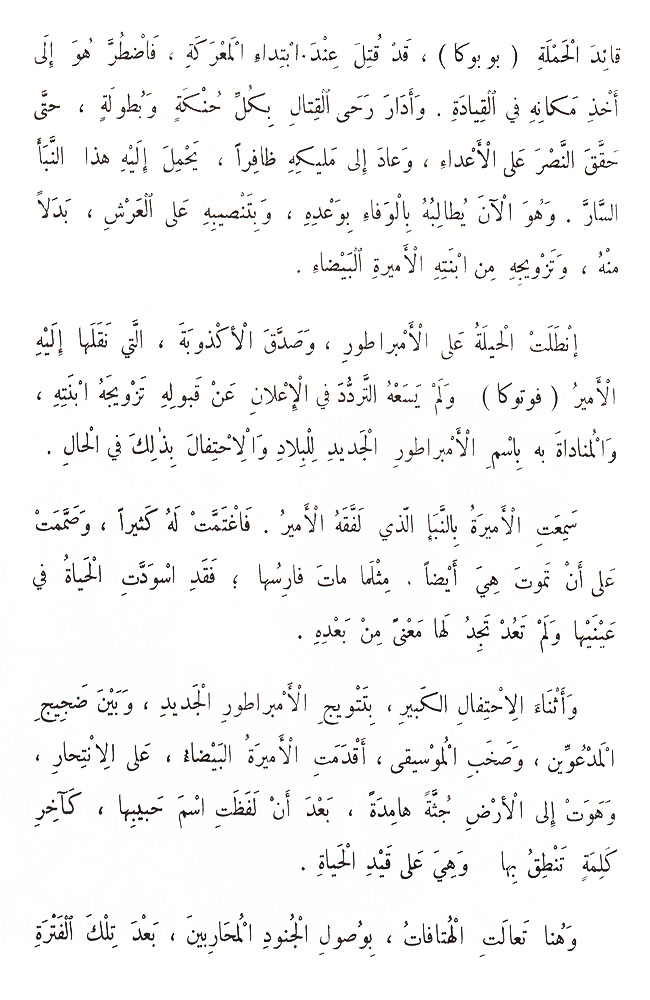 قائِدَ الْحَمْلَةِ ( بوبوكا ) ، قَدْ قُتِلَ عِنْدَ ابْتِداءِ الْمَعْرَكَةِ ، فَاضْطُرَّ هُوَ إِلَى
أَخْذِ مَكانِهِ في الْقِيادَةِ . وَأَدَارَ رَحَى الْقِتالِ بِكُلِّ حُنْكَةٍ وَبُطولَةٍ ، حتَّى
حَقَّقَ النَّصْرَ عَلى الْأَعْداءِ ، وَعادَ إِلى مَليكِهِ ظافِراً ، يَحْمِلَ إِلَيْهِ هذا النَّبَأَ
السَّارَّ . وَهُوَ الْآنَ يُطالِبُهُ بِالْوَفاءِ بِوَعْدِهِ ، وَبِتَنْصيبِهِ عَلى الْعَرْشِ ، بَدَلاً
منْهُ ، وَتَزْويجِهِ مِن ابْنَتِهِ الْأَميرةِ الْبَيْضاءِ .
إنْطَلَتْ الْحيلَةُ عَلى الْأَمْبراطورِ ، وَصَدَّقَ الْأكْذوبَةَ ، الَّتي نَقَلَها إلَيْهِ
الْأَميرُ ( فوتوكا ) وَلَمْ يَسَعْهُ التَّردُّدَ في الْإِعْلانِ عَنْ قَبولِهِ تَزْويجَهُ ابْنَتِهِ ،
وَالْمناداةَ به بِاسْمِ الْأَمْبراطورِ الْجَديدِ لِلْبِلادِ وَالْاِحْتِفالَ بِذٰلِكَ في الْحالِ .
سَمِعَتِ الْأَميرَةُ بِالنَّبَإِ الّذي لَفَّقَهُ الْأَميرُ . فَاغْتَمَّتْ لَهُ كَثيراً ، وَصَمَّمَتْ
عَلى أَنْ تَموتَ هِيَ أَيْضاً . مِثْلَما ماتَ فارِسُها ؛ فَقَدِ اسْوَدَّتِ الْحَياةُ في
عَيْنَيْها وَلَمْ تَعُدْ تَجِدُ لَها مَعْنىً مِنْ بَعْدِهِ .
وَأَثْناءَ الاِحْتِفالِ الكَبيرِ ، بِتَتْويجِ الْأَمْبراطورِ الْجَديدِ ، وَبَيْنَ ضَجيجِ
الْمَدْعُوِّين ، وَصَخَبِ الْموْسيقى ، أَقْدَمَتِ الْأَميرَةُ البَيْضاءُ ، عَلى الاِنْتِحارِ ،
وَهَوَتْ إِلى الْأَرْضِ جُثَّةً هامِدَةً ، بَعْدَ أَنْ لَفَظَتِ اسْمَ حَبيبِها ، كَآخِرِ
كَلِمَةٍ تَنْطِقُ بِها وَهِيَ عَلى قَيْدِ الْحَياةِ .
وَهُنا تَعالَتِ الْهُتافاتُ ، بِوُصولِ الْجُنودِ الْمُحَارِبينَ ، بَعْدَ تِلْكَ الْفَتْرَةِ